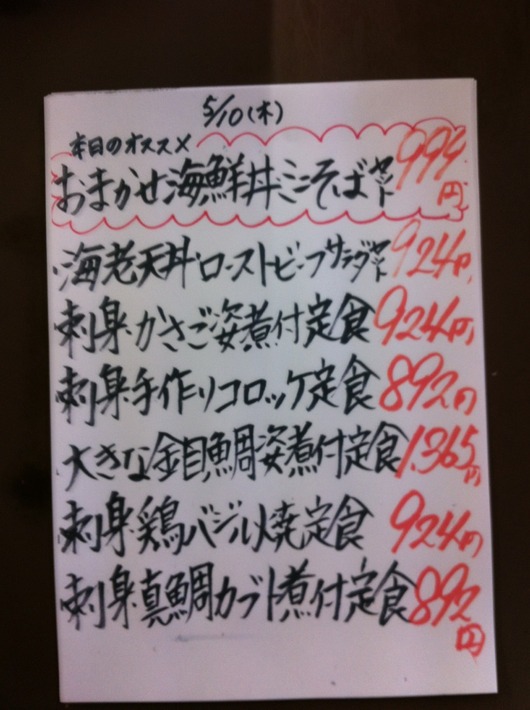 5/10(木)
本日のオススメ
おまかせ海鮮丼ミニそばセット 999円
海老天丼・ローストビーフサラダセット 924円
刺身・かさご姿煮付定食 924円
刺身・手作りコロッケ定食 892円
大きな金目鯛姿煮付定食 1,365円
刺身・鶏バジル焼定食 924円
刺身・真鯛カブト煮付定食 892円